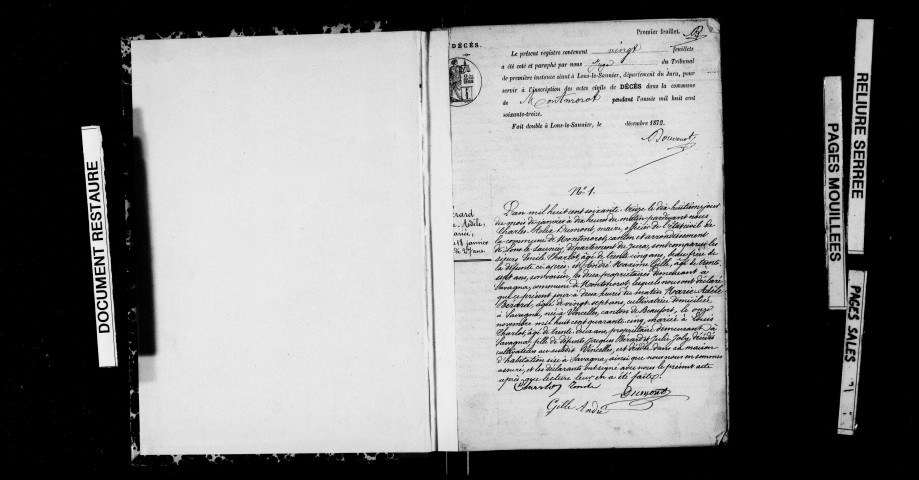 DOCUMENT RESTAURE
Premier feuillet.
DÉCÈS.
Le présent registre contenant vingt feuillets
a été coté et paraphé par nous Juge du Tribunal
de première instance séant à Lons-le-Saunier, département du Jura, pour
servir à l'inscription des actes civils de DÉCÈS dans la commune
de Montmorot pendant l'année mil huit cent
soixante-treize.
Fait double à Lons-le-Saunier, le décembre 1872.
N° 1.
érard
Adèle,
18 janvier
27 ans.
L'an mil huit cent soixante-treize le dix-huitième jour
du mois de janvier à dix heures du matin pardevant nous
Charles Dumont, maire, officier de l'état civil de
la commune de Montmorot, canton et arrondissement
de Lons le Saunier, département du Jura, sont comparus les
sieurs Charlot, âgé de trente cinq ans, beau frère de
la défunte ci après, et André Maxime Gelle, âgé de trente
sept ans, son voisin, les deux propriétaires demeurant à
Savagna, commune de Montmorot, lesquels nous ont déclaré
que ce présent jour à deux heures du matin Marie Adèle
Bérard, âgée de vingt sept ans, cultivatrice domiciliée
à Savagna, née à Vincelles, canton de Beaufort, le onze
novembre mil huit cent quarante cinq, mariée à Louis
Charlot, âgé de trente deux ans, propriétaire demeurant à
Savagna, fille de défunts Jacques Bérard et Julie Joly, décédés
cultivateurs au susdit Vincelles, est décédée dans sa maison
d'habitation sise à Savagna, ainsi que nous nous en sommes
assuré, et les déclarants ont signé avec nous le présent acte
après que lecture leur en a été faite.
Dumont
Gelle André
RELIURE SERREE
PAGES MOUILLEES
PAGES SALES